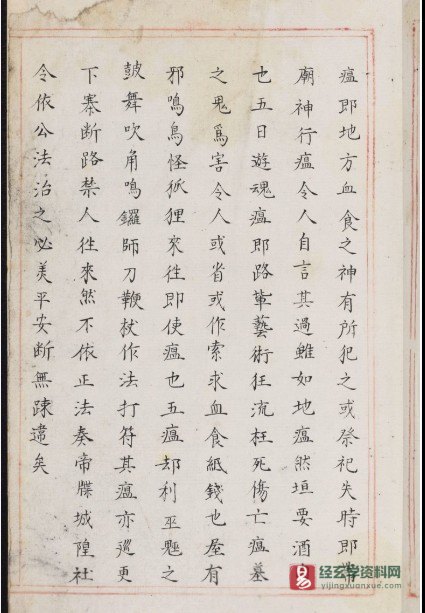 瘟即地方血食之神有所犯之或祭祀失時即
廟神行瘟令人自言其過雖如地瘟然垣要酒
也五曰遊魂瘟即路軰藝術狂流枉死傷亡瘟墓
之鬼爲害令人或省或作索求血食紙錢也屋有
邪鳴鳥怪狐狸來徃即使瘟也五瘟却利巫魘之
皷舞吹角鳴鑼師刀鞭杖作法打符其瘟亦遞更
下寨断路禁人徃來然不依正法奏帝牒城隍社
令依公法治之必美平安断無踈違矣
经玄学资料网
yijingxuanxue.com